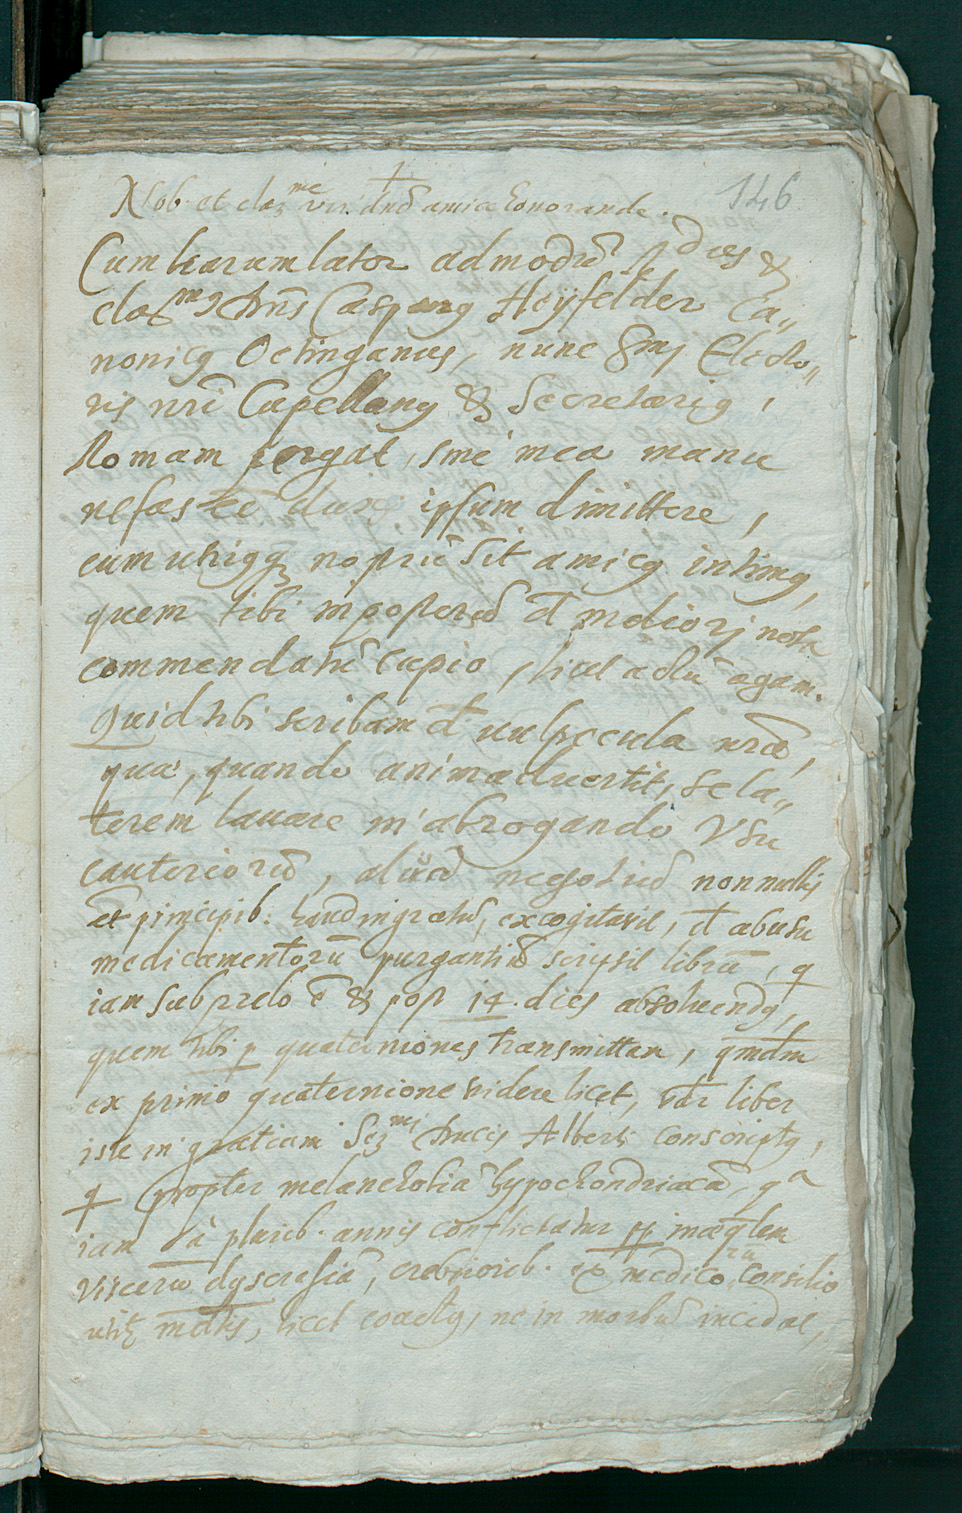 146
Nob. et claz.me vir dnē amice honorande.
Cum harum lator admodū Rdes &
clar.m9 Dn̄s Casparg Heÿfelder Ca„
nonicg Oetinganus, nunc Smj Electo„
ris nr̄i Capellang & Secretarig,
Romam pergat, sine mea manu
nefas ipsum dimittere,
cum utrigq nōprū sit amicg intimg,
quem tibi
commendatū cupio, licet actū agam.
Quid tibi scribam đ vulpecula nrā,
quæ, quando animaduertit, se la„
terem lavare in abrogando Vsu
cauteriorū, aliud negotiū nonnullis
et principib. haud ingratū, excogitavit, đ abusu
medicamentorū purgantiū scripsit librū, q
iam sub prelo ē & post 14. dies absoluendg,
quem tibi p quaterniones transmittam, qmdm
ex primo quaternione videre licet, liber
iste in gratiam Ser.mi Ducis Alberti conscriptg,
q propter melancholiā hypochondriacā, qa
iam à plurib. annis conflictatur pp inæqlem
viscerū dyscrasiā, crebriorib. ex medicorū consilio
utit͡ mdtis, licet coactg, ne in morbū incidat,